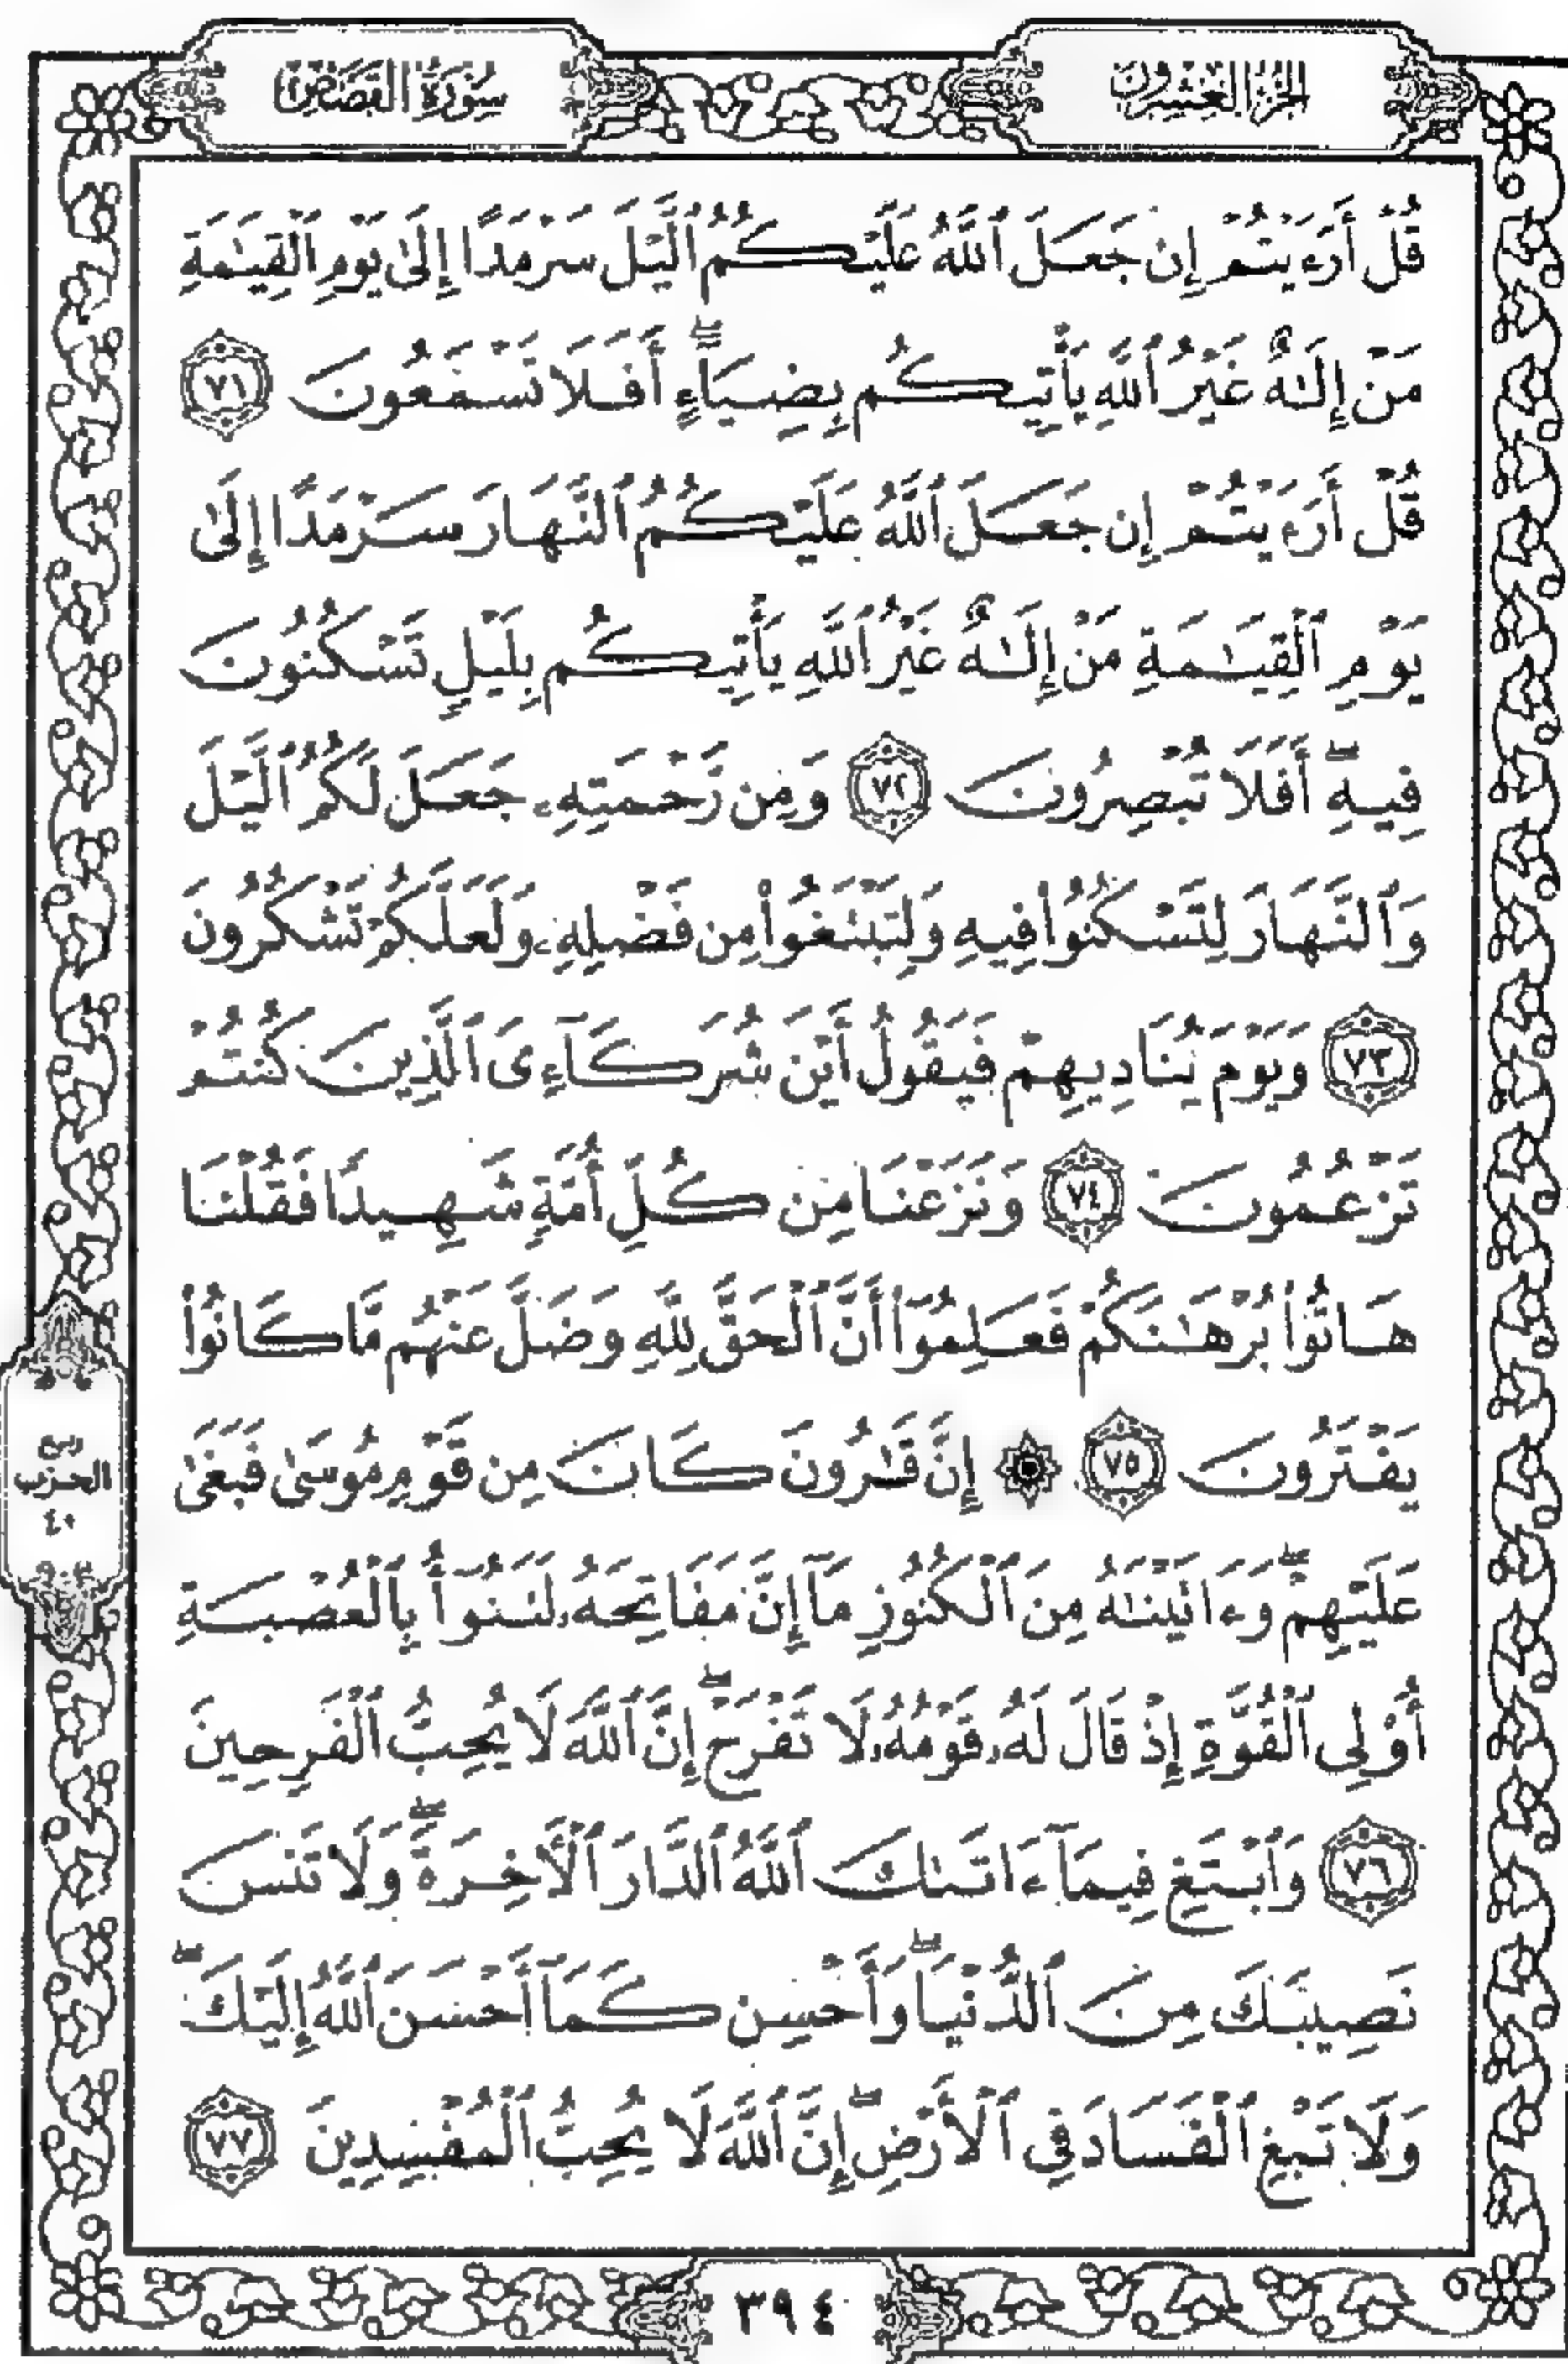 الجزء العشرون
سورة القصص
قُلْ أَرَءَيْتُمْ إِن جَعَلَ ٱللَّهُ عَلَيْكُمُ ٱلَّيْلَ سَرْمَدًا إِلَىٰ يَوْمِ ٱلْقِيَٰمَةِ
مَنْ إِلَٰهٌ غَيْرُ ٱللَّهِ يَأْتِيكُم بِضِيَآءٍ ۖ أَفَلَا تَسْمَعُونَ ٧١
قُلْ أَرَءَيْتُمْ إِن جَعَلَ ٱللَّهُ عَلَيْكُمُ ٱلنَّهَارَ سَرْمَدًا إِلَىٰ
يَوْمِ ٱلْقِيَٰمَةِ مَنْ إِلَٰهٌ غَيْرُ ٱللَّهِ يَأْتِيكُم بِلَيْلٍ تَسْكُنُونَ
فِيهِ ۖ أَفَلَا تُبْصِرُونَ ٧٢ وَمِن رَّحْمَتِهِۦ جَعَلَ لَكُمُ ٱلَّيْلَ
وَٱلنَّهَارَ لِتَسْكُنُوا۟ فِيهِ وَلِتَبْتَغُوا۟ مِن فَضْلِهِۦ وَلَعَلَّكُمْ تَشْكُرُونَ
٧٣ وَيَوْمَ يُنَادِيهِمْ فَيَقُولُ أَيْنَ شُرَكَآءِىَ ٱلَّذِينَ كُنتُمْ
تَزْعُمُونَ ٧٤ وَنَزَعْنَا مِن كُلِّ أُمَّةٍ شَهِيدًا فَقُلْنَا
هَاتُوا۟ بُرْهَٰنَكُمْ فَعَلِمُوٓا۟ أَنَّ ٱلْحَقَّ لِلَّهِ وَضَلَّ عَنْهُم مَّا كَانُوا۟
يَفْتَرُونَ ٧٥ ۞ إِنَّ قَٰرُونَ كَانَ مِن قَوْمِ مُوسَىٰ فَبَغَىٰ
عَلَيْهِمْ ۖ وَءَاتَيْنَٰهُ مِنَ ٱلْكُنُوزِ مَآ إِنَّ مَفَاتِحَهُۥ لَتَنُوٓأُ بِٱلْعُصْبَةِ
أُو۟لِى ٱلْقُوَّةِ إِذْ قَالَ لَهُۥ قَوْمُهُۥ لَا تَفْرَحْ ۖ إِنَّ ٱللَّهَ لَا يُحِبُّ ٱلْفَرِحِينَ
٧٦ وَٱبْتَغِ فِيمَآ ءَاتَىٰكَ ٱللَّهُ ٱلدَّارَ ٱلْـَٔاخِرَةَ ۖ وَلَا تَنسَ
نَصِيبَكَ مِنَ ٱلدُّنْيَا ۖ وَأَحْسِن كَمَآ أَحْسَنَ ٱللَّهُ إِلَيْكَ ۖ
وَلَا تَبْغِ ٱلْفَسَادَ فِى ٱلْأَرْضِ ۖ إِنَّ ٱللَّهَ لَا يُحِبُّ ٱلْمُفْسِدِينَ ٧٧
ربع
الحزب
٤٠
٣٩٤